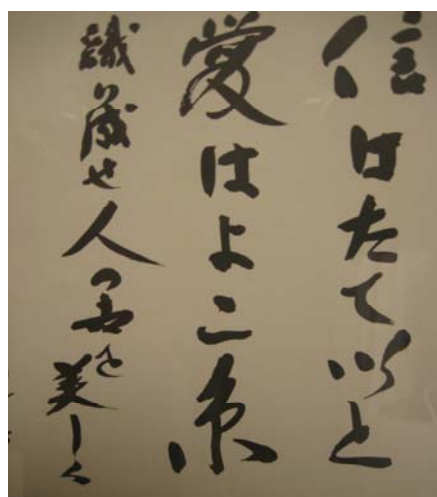 信はたていと
愛はよこ糸
織り成せ人の世を美しく